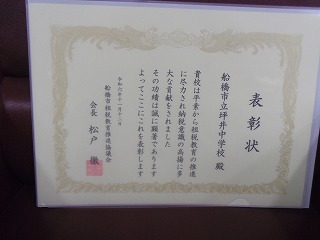 表彰状
船橋市立坪井中学校 殿
貴校は平素から租税教育の推進
に尽力され納税意識の高揚に多
大な貢献をされました
その功績は誠に顕著であります
よってここにこれを表彰します
令和六年十一月十二日
船橋市租税教育推進協議会
会長 松戸 徹